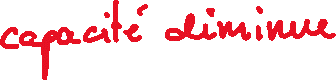 capacité diminue